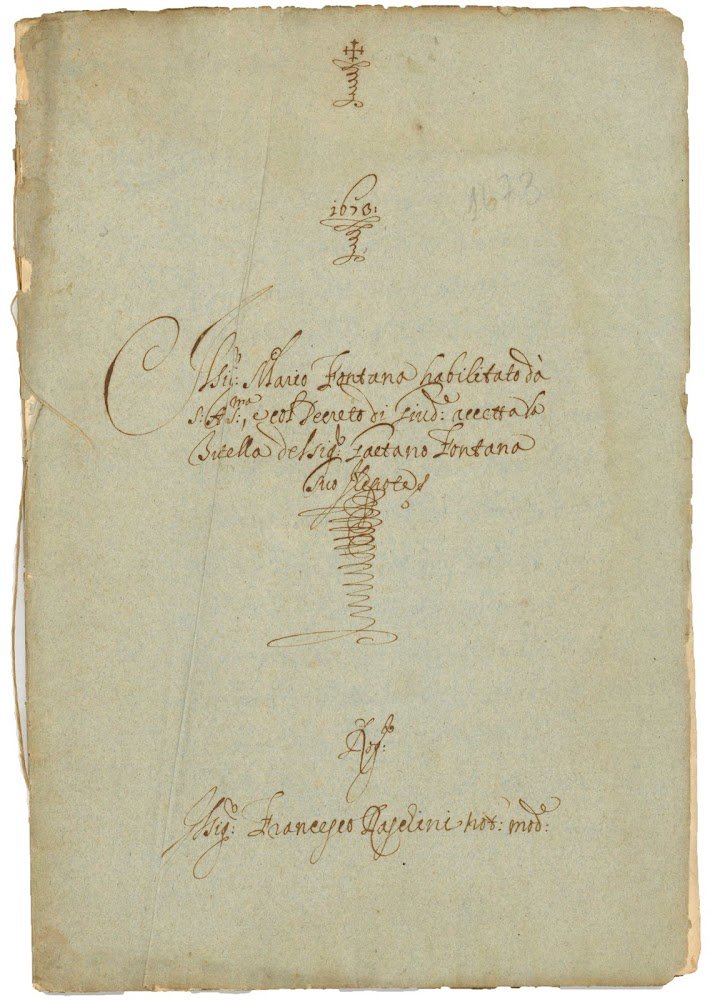 1673:
1673
Il sig:r Marco Fontana habilitato dà
S: A: S:ma, e col Decreto di Giud:e accetta la
Tutella del sig:r Gaetano Fontana
suo Nepote
Rog:o
Il sig:r Francesco not: mod:e